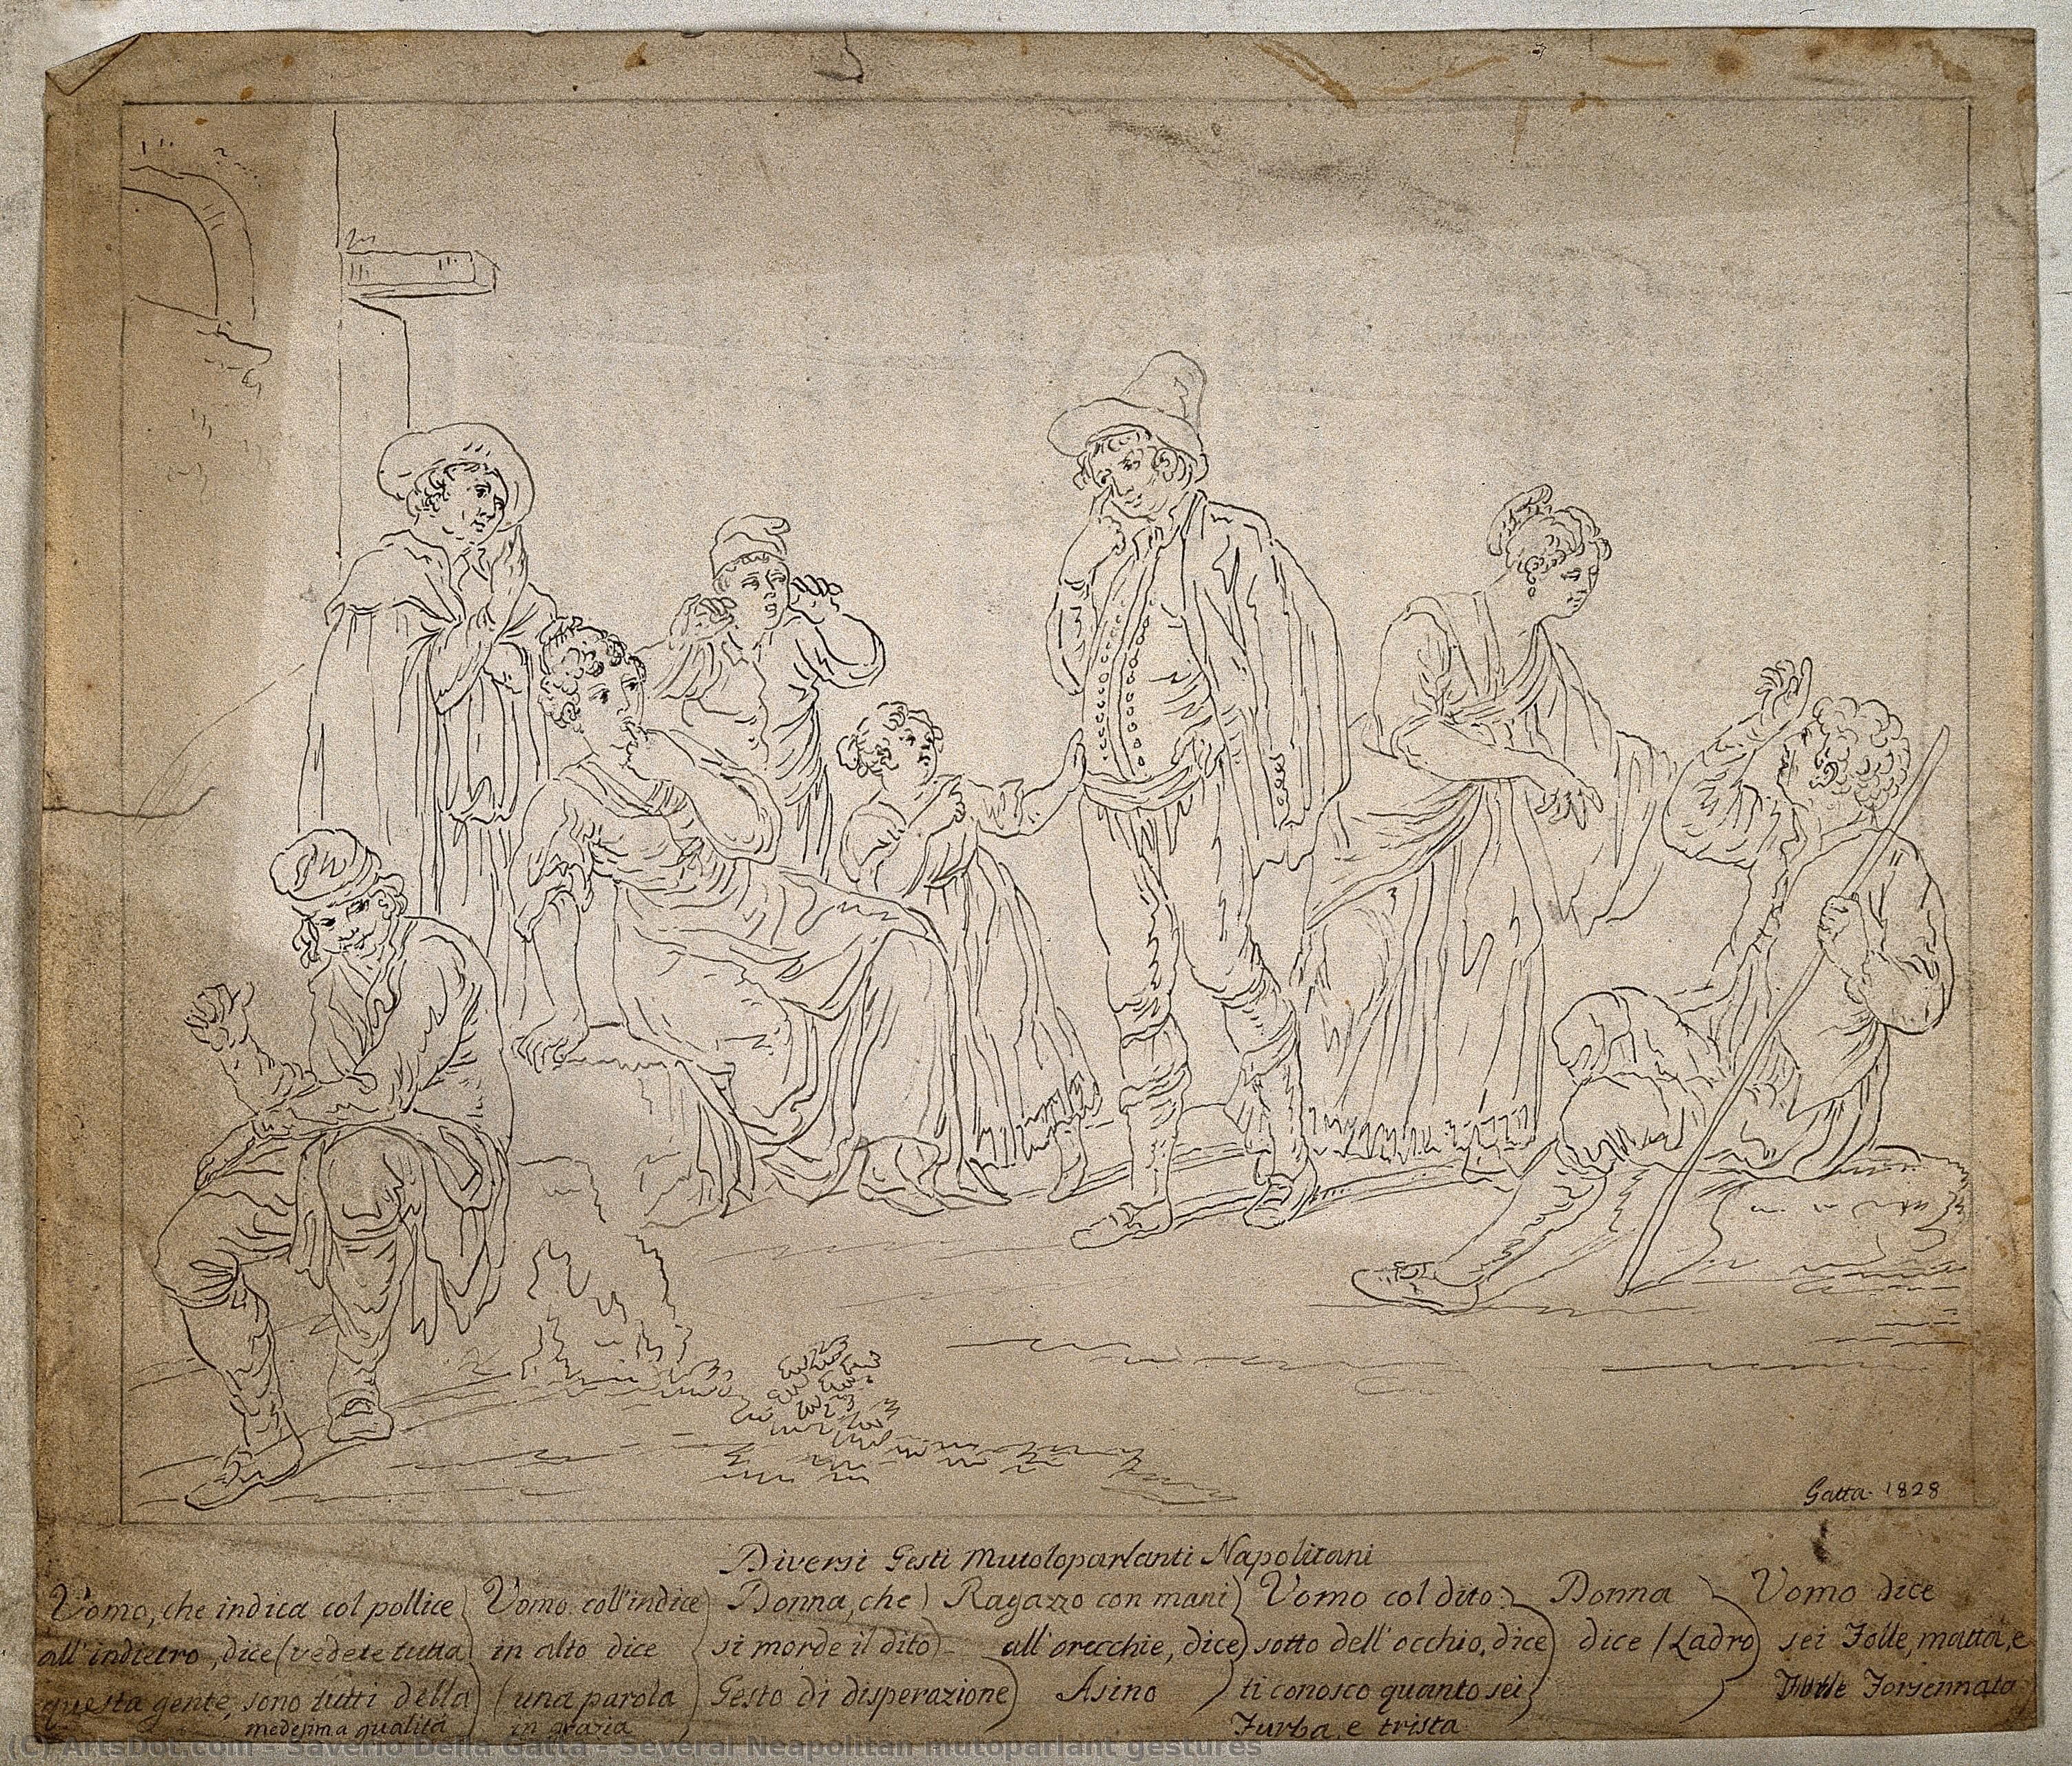 Gatta 1828
Diversi Gesti Mutoloparlanti Napolitani
Uomo, che indica col pollice
all'indietro, dice (vedete tutta
questa gente, sono tutti della
medesima qualità
Uomo coll'indice
in alto dice
(una parola
in grazia
Donna, che
si morde il dito)
Gesto di disperazione
Ragazzo con mani
all'orecchie, dice
Asino
Uomo col dito
sotto dell'occhio, dice
ti conosco quanto sei
Furba e trista
Donna
dice (Ladro
Uomo dice
sei Folle, matta, e
Forsennata
(C) ArtsDot.com - Saverio Della Gatta - Several Neapolitan mutoparlant gestures